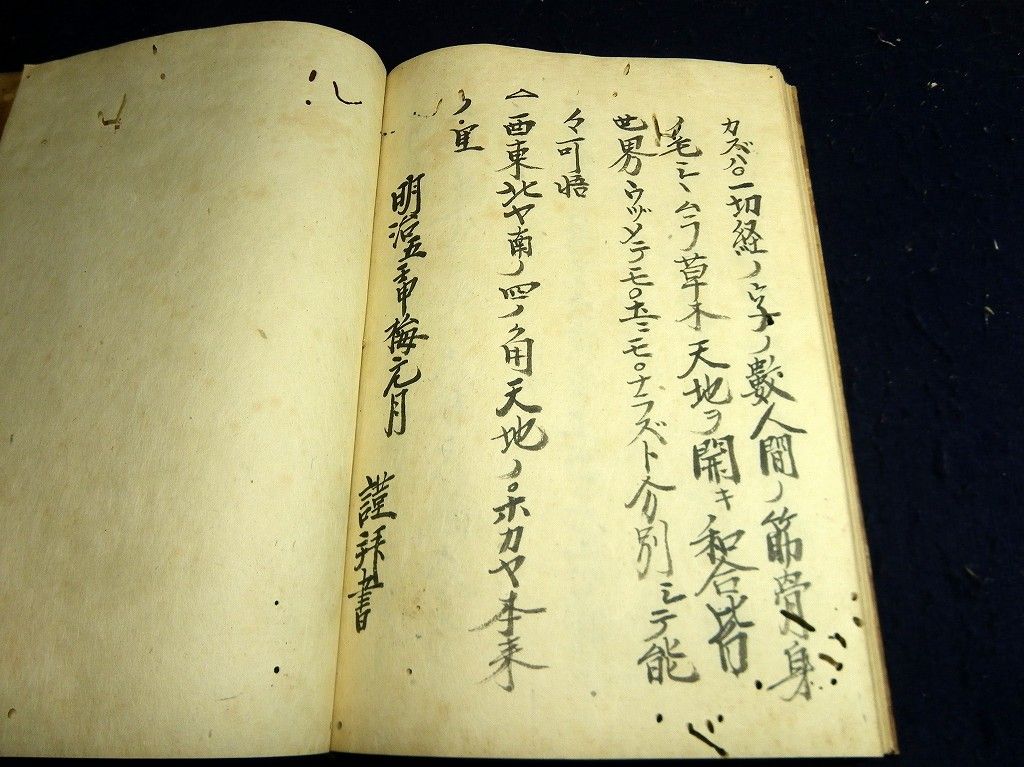 カズハ。一切経ノ字ノ數人間ノ筋骨身
ノ毛シヽムラ草木天地ヲ開キ和合皆
世界ウヅメテモ。土ニモ。ナラズト分別シテ能
々可悟
△西東北ヤ南ノ四ノ角天地ノ。ホカヤ本来
ノ里
明治五壬申梅元月 謹拜書